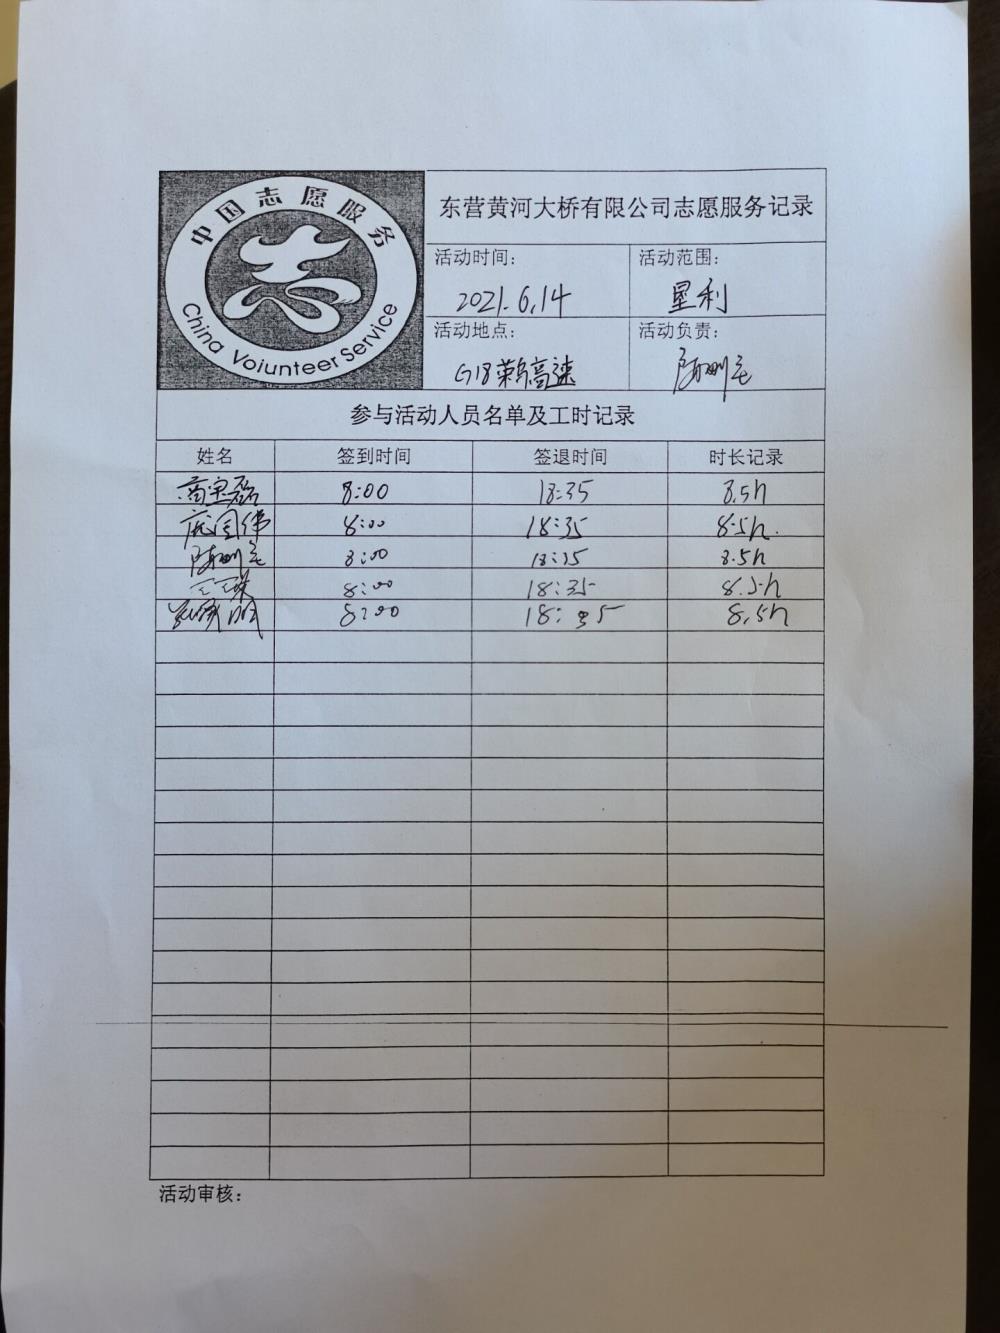 中国志愿服务
China Voiunteer Service
东营黄河大桥有限公司志愿服务记录
活动时间:
活动范围:
2021.6.14
垦利
活动地点:
活动负责:
G18荣乌高速
参与活动人员名单及工时记录
姓名 签到时间 签退时间 时长记录
8:00 18:35 8.5h
8:00 18:35 8.5h.
8:00 18:35 8.5h
8:00 18:35 8.5h
8:00 18:35 8.5h
活动审核: